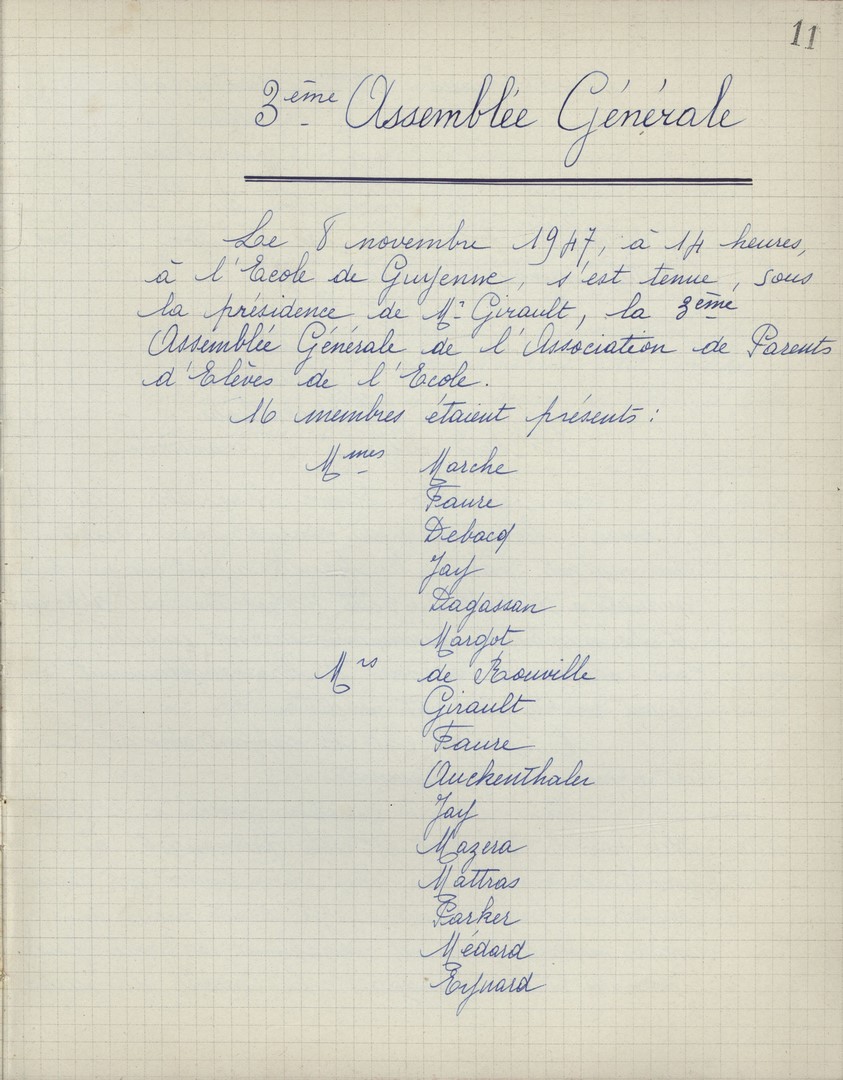 11
3ème Assemblée Générale
Le 8 novembre 1947, à 14 heures,
à l'Ecole de Guyenne, s'est tenue, sous
la présidence de Mr Girault, la 3ème
Assemblée Générale de l'Association de Parents
d'Elèves de l'Ecole.
16 membres étaient présents :
Mmes Marche
Faure
Debacq
Jay
Dagassan
Margot
Mrs de Rouville
Girault
Faure
Auckenthaler
Jay
Mazera
Mattras
Parker
Médard
Eynard